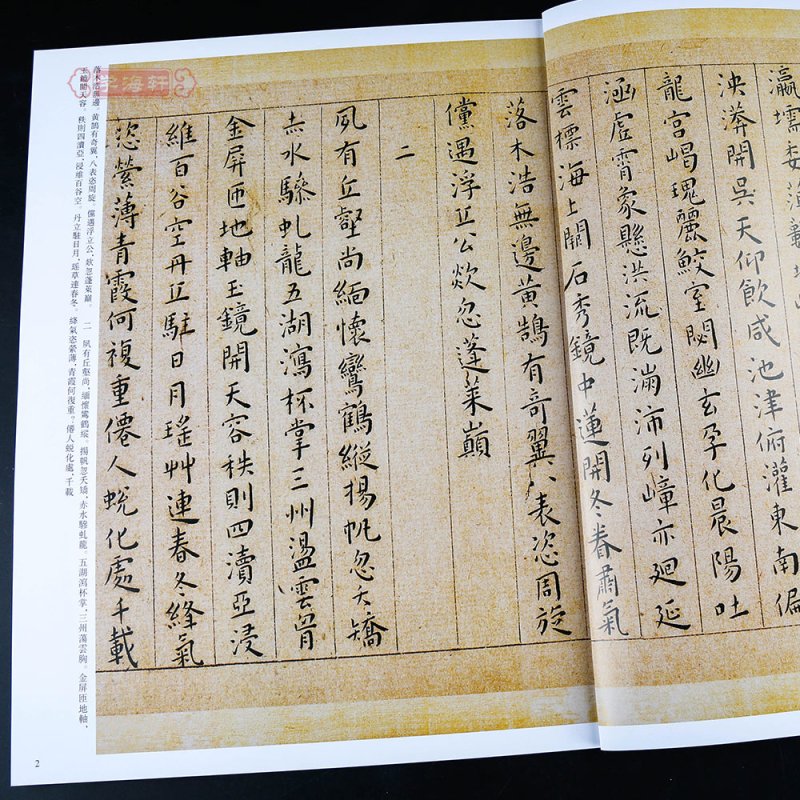 瀛壖委
泱漭開吳天仰飲咸池津俯灌東南偏
龍宮崵瑰麗鮫室閟幽玄孕化晨陽吐
涵虛霄象懸洪流既滿沛列嶂亦迴延
雲標海上闢石秀鏡中蓮開冬眷肅氣
落木浩無邊黃鵠有奇翼八表恣周旋
儻遇浮丘公欻忽蓬萊巔
二
夙有丘壑尚緬懷鸞鶴縱揚帆忽夭矯
赤水驂虬龍五湖瀉杯掌三州盪雲胷
金屏匝地軸玉鏡開天容秩則四瀆亞浸
維百谷空丹丘駐日月瑤艸連春冬絳氣
恣縈薄青霞何複重僊人蛻化處千載
落木浩無邊。黃鵠有奇翼，八表恣周旋。儻遇浮立公，欻忽蓬萊巔。 二 夙有丘壑尚，緬懷鸞鶴縱。揚帆忽夭矯，赤水驂虬龍。五湖瀉杯掌，三州蕩雲胸。金屏匝地軸，
玉鏡開天容。秩則四瀆亞，浸維百谷空。丹立駐日月，瑤草連春冬。絳氣恣縈薄，青霞何復重？僊人蛻化處，千載
字海軒
2